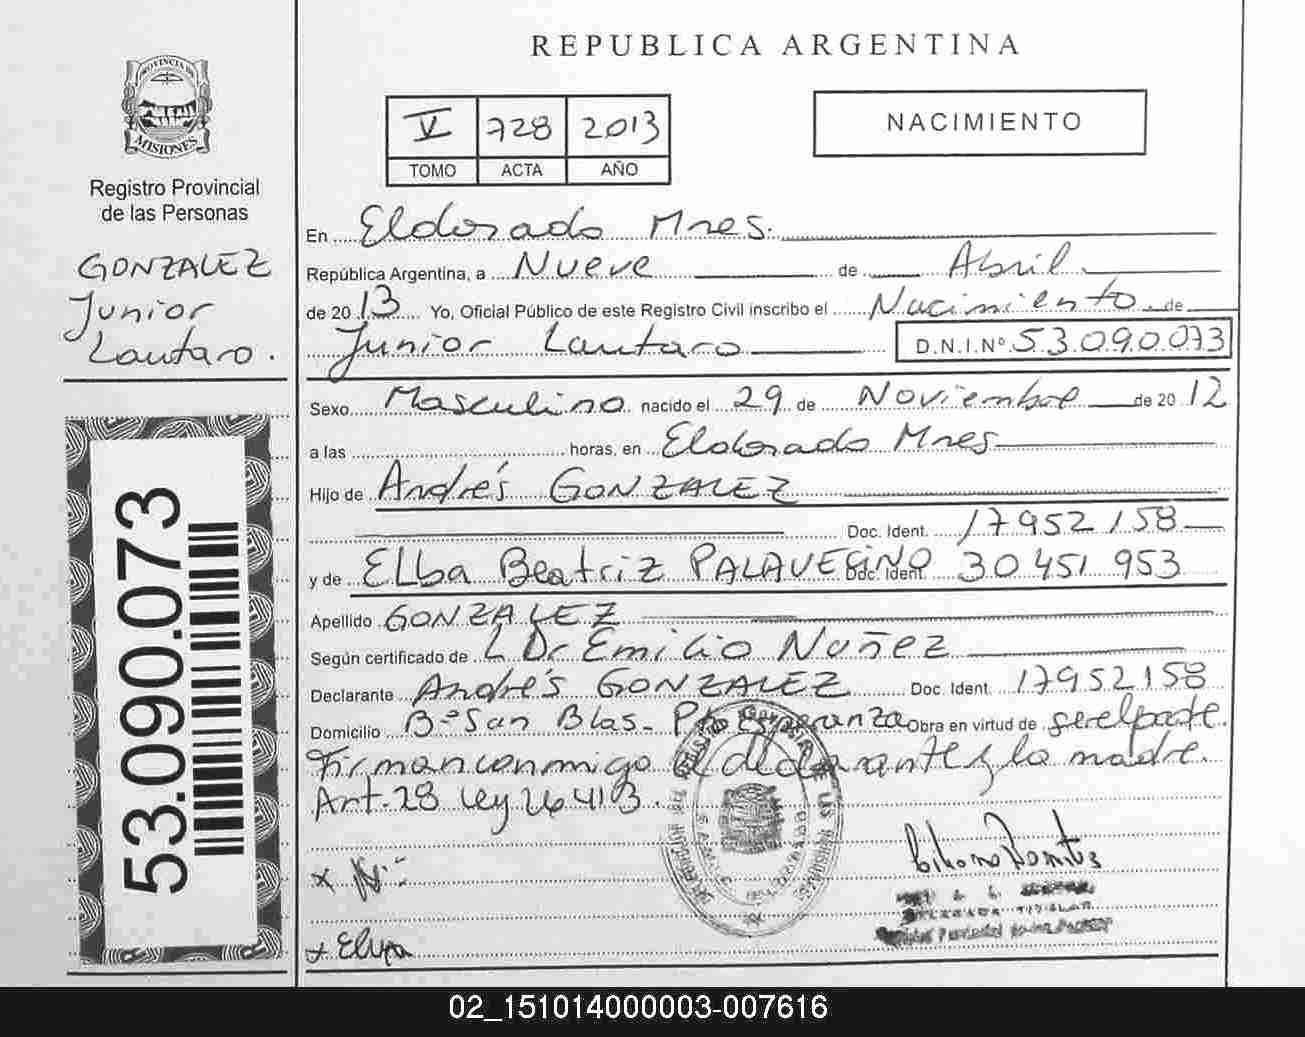 REPUBLICA ARGENTINA
PROVINCIA DE
MISIONES
Registro Provincial
de las Personas
GONZALEZ
Junior
Lautaro.
53.090.073
V 728 2013
TOMO ACTA AÑO
NACIMIENTO
En Eldorado Mnes.
República Argentina, a Nueve de Abril
de 2013 Yo, Oficial Público de este Registro Civil inscribo el Nacimiento de
Junior Lautaro D.N.I.Nº 53.090.073
Sexo Masculino nacido el 29 de Noviembre de 2012
a las horas, en Eldorado Mnes
Hijo de Andrés GONZALEZ
Doc. Ident. 17952158
y de ELba Beatriz PALAVESINO Doc. Ident. 30451953
Apellido GONZALEZ
Según certificado de L Dr Emilio Nuñez
Declarante Andrés GONZALEZ Doc. Ident. 17952158
Domicilio Bº San Blas - Pto Esperanza Obra en virtud de ser el padre.
Firman conmigo el declarante y la madre.
Art. 28 Ley 26413.
x
x Elva
DELEGADA TITULAR
02_151014000003-007616